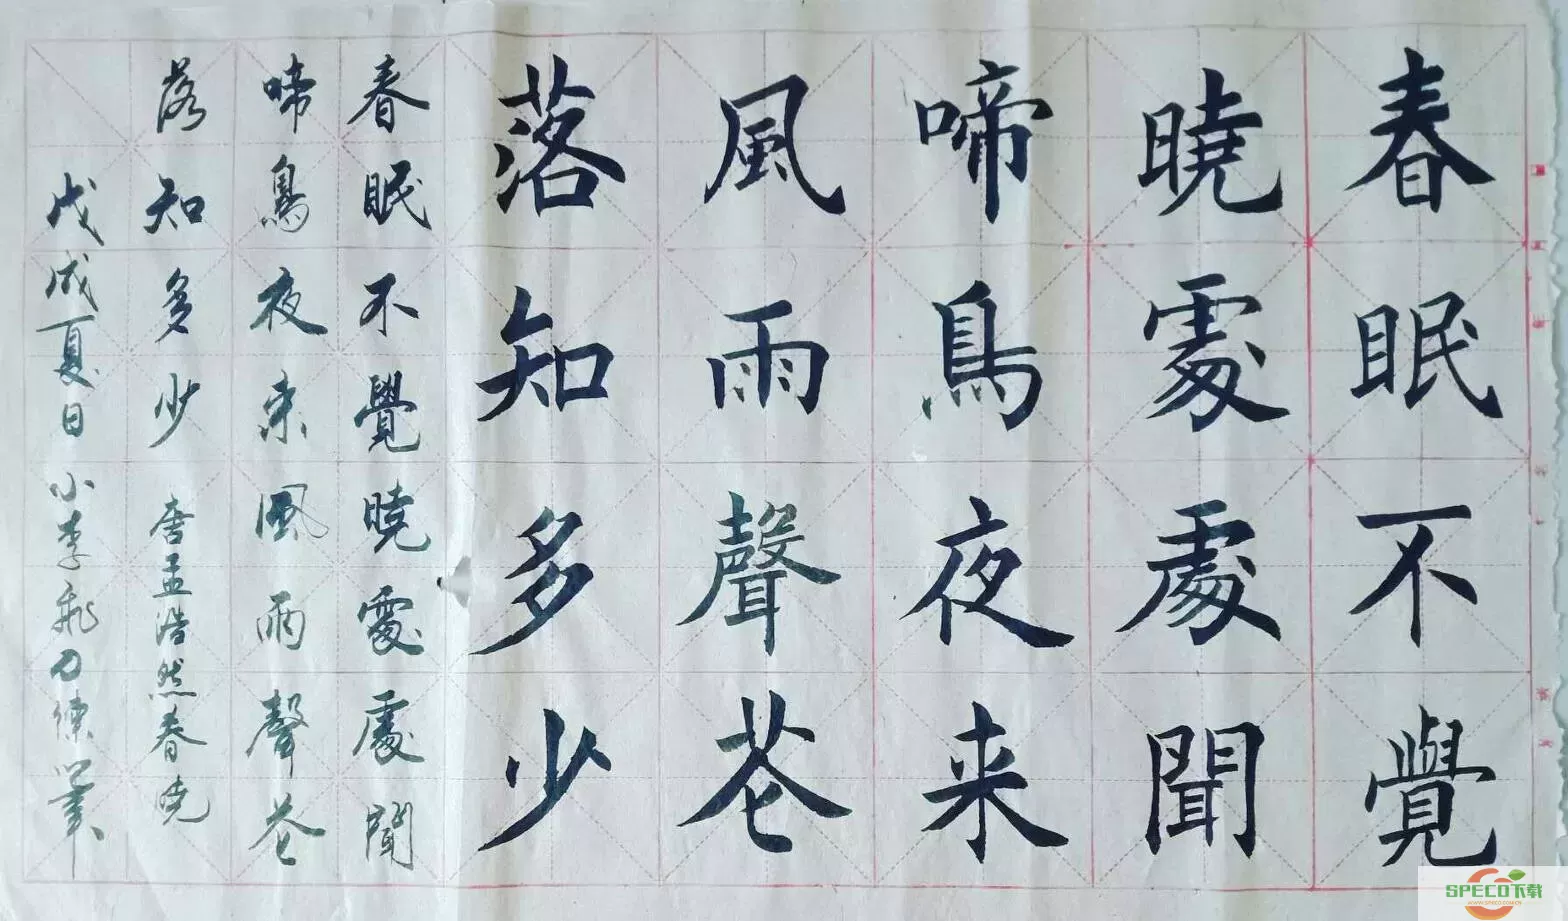 春眠不覺
曉處處聞
啼鳥夜来
風雨聲花
落知多少
春眠不覺曉處處聞
啼鳥夜来風雨聲花
落知多少 唐孟浩然春曉
戊戌夏日小李飛刀練筆
SPECO下载
WWW.SPECO.COM.CN